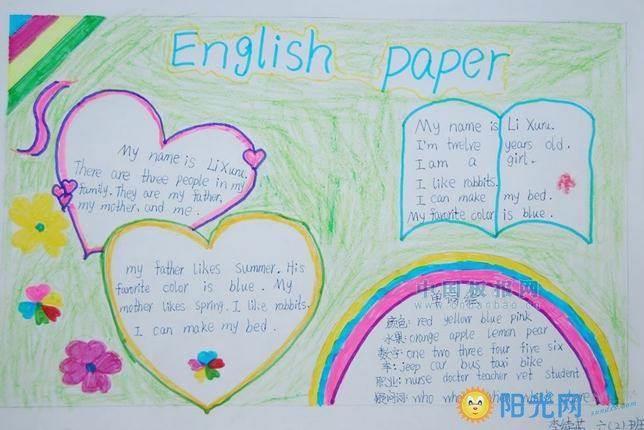 English paper
My name is Li Xuru.
There are three people in my
family. They are my father,
my mother, and me.
my father likes summer. His
favorite color is blue. My
mother likes spring. I like rabbits.
I can make my bed.
My name is Li Xuru.
I'm twelve years old.
I am a girl.
I like rabbits.
I can make my bed.
My favorite color is blue.
中国板报网
颜色: red yellow blue pink
水果: orange apple lemon pear
数字: one two three four five six
车: jeep car bus taxi bike
职业: nurse doctor teacher vet student
疑问词: who
阳光网
六(2)班